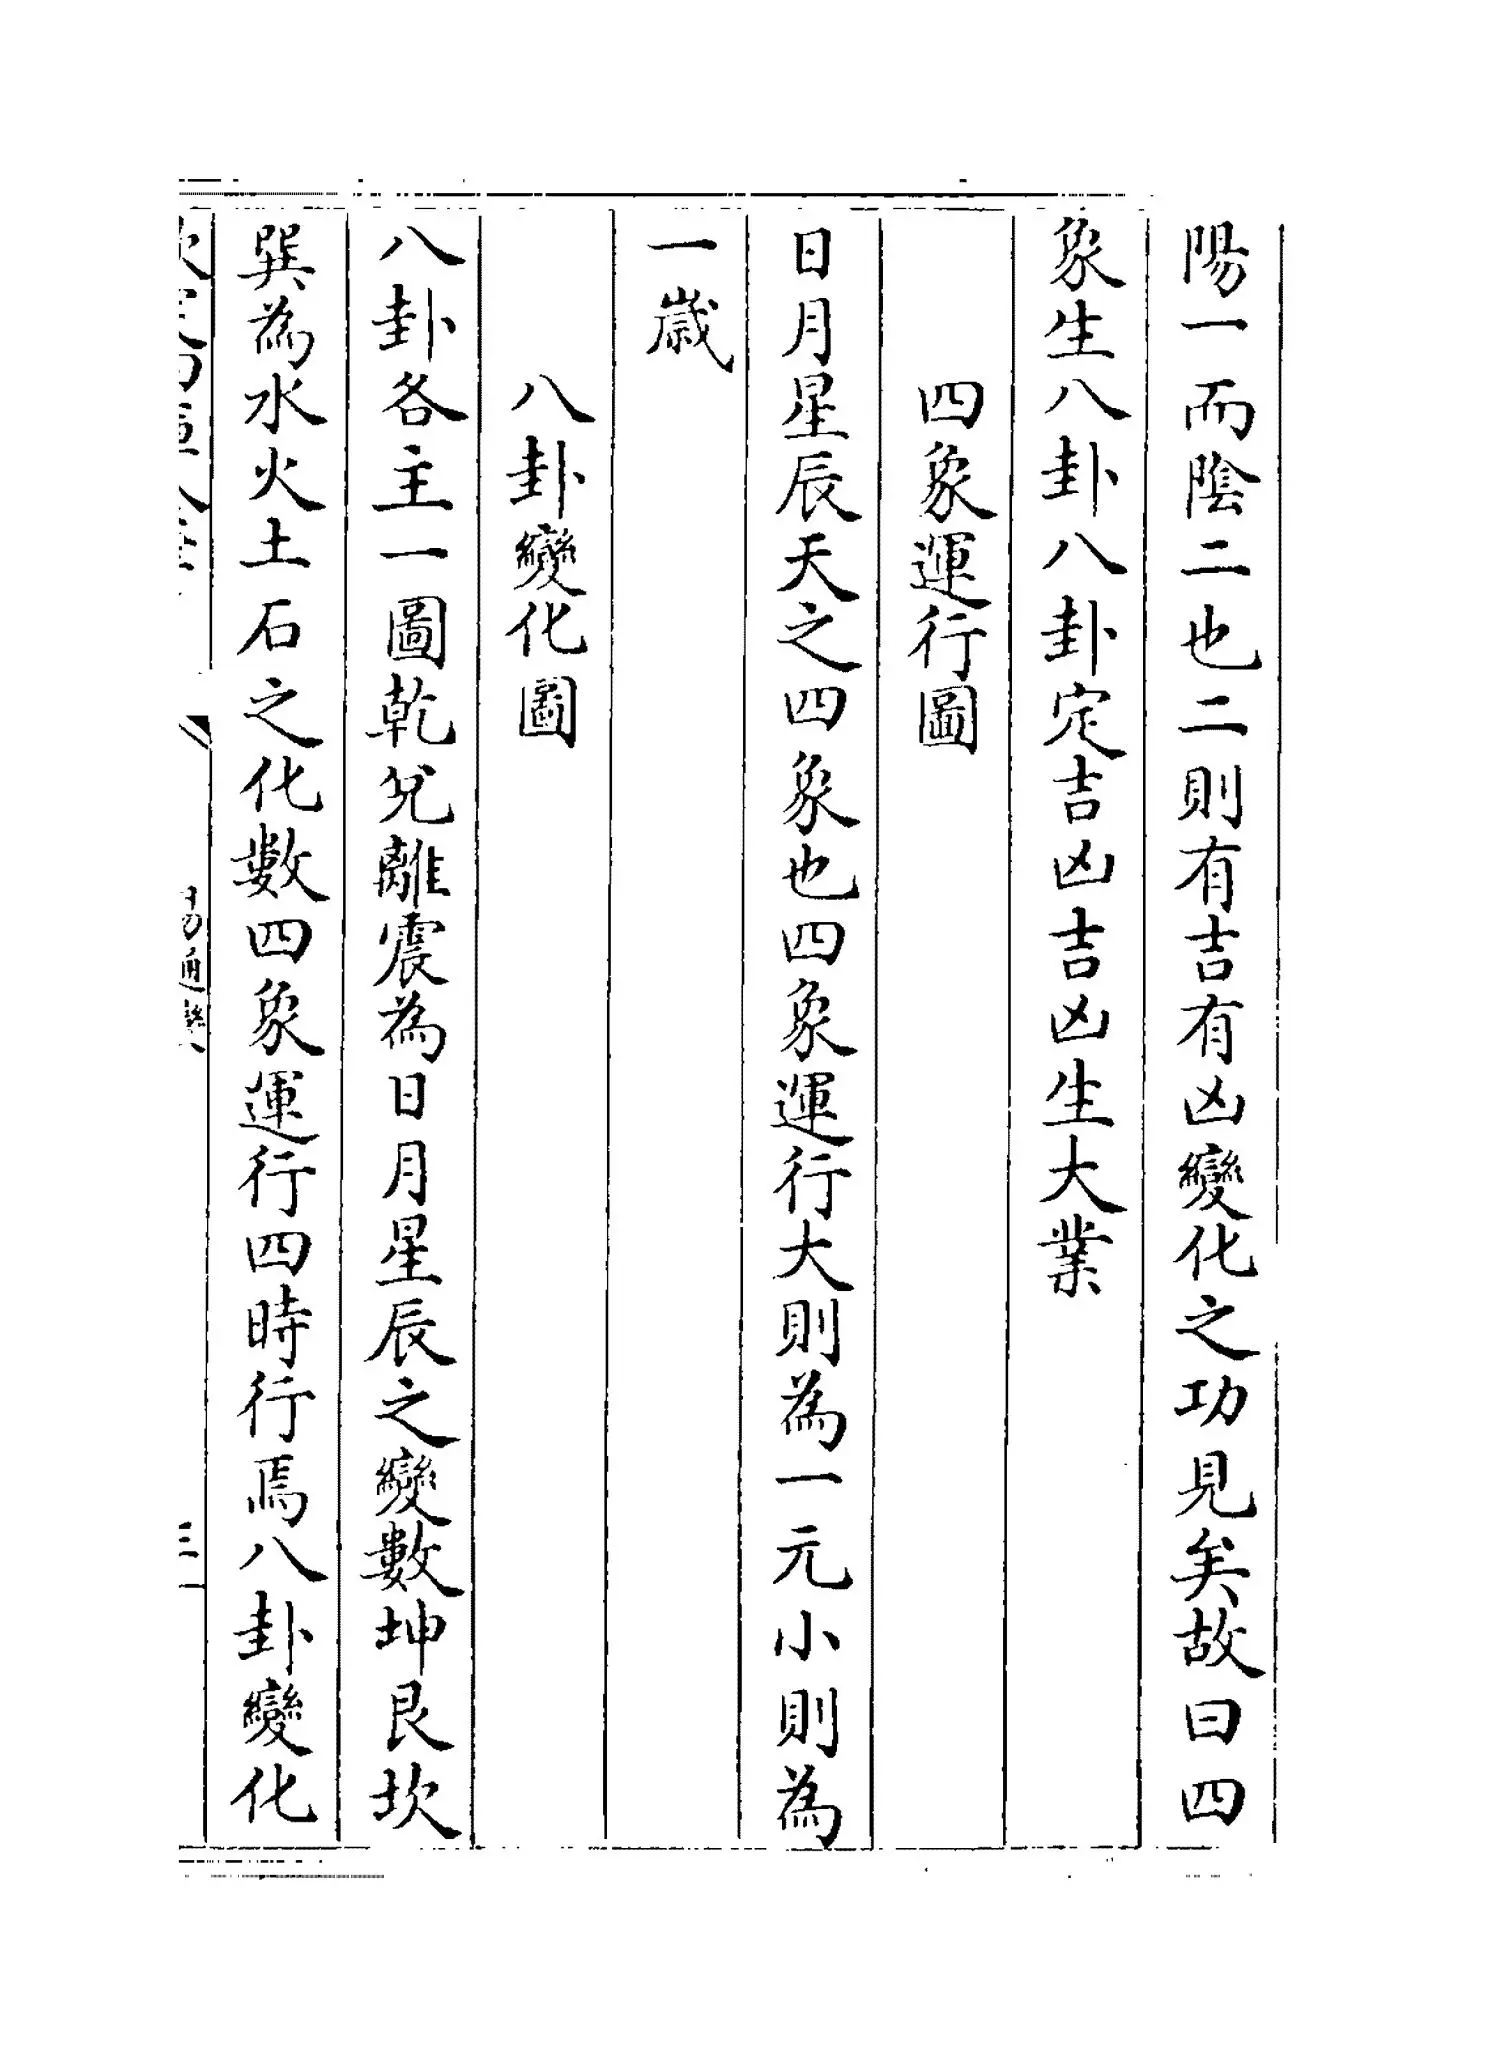 陽一而陰二也二則有吉有凶變化之功見矣故曰四
象生八卦八卦定吉凶吉凶生大業
四象運行圖
日月星辰天之四象也四象運行大則為一元小則為
一歲
八卦變化圖
八卦各主一圖乾兌離震為日月星辰之變數坤艮坎
巽為水火土石之化數四象運行四時行焉八卦變化